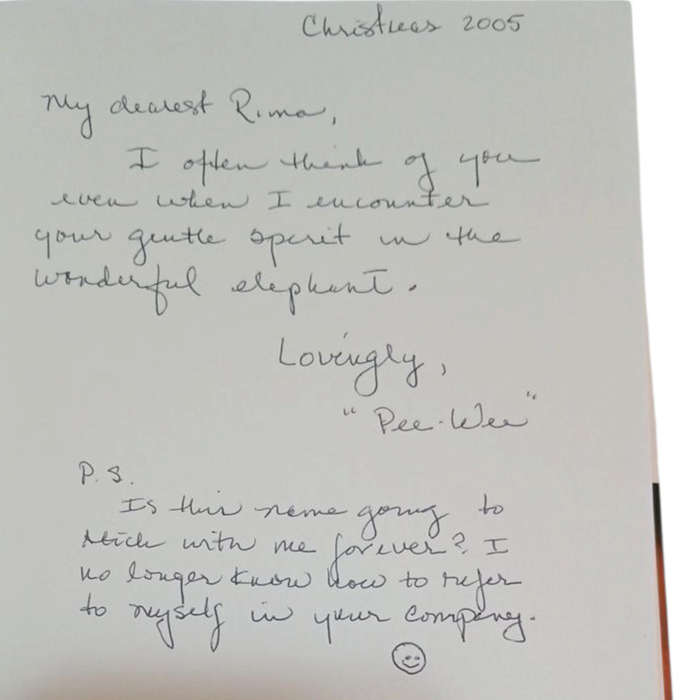 Christmas 2005
My dearest Rima,
I often think of you
even when I encounter
your gentle spirit in the
wonderful elephant.
Lovingly,
"Pee-Wee"
P.S.
Is this name going to
stick with me forever? I
no longer know how to refer
to myself in your company.